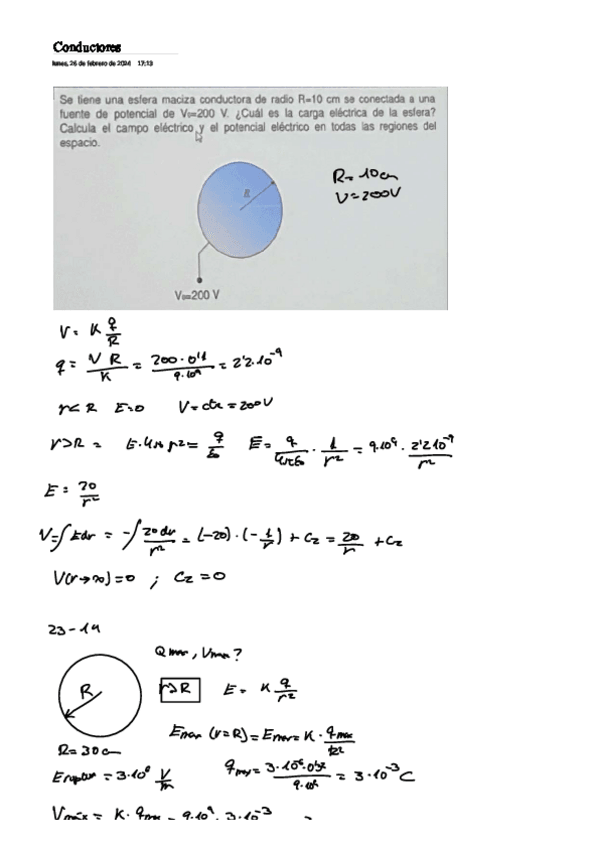 Conductores
lunes, 26 de febrero de 2024 17:13
Se tiene una esfera maciza conductora de radio R=10 cm se conectada a una
fuente de potencial de V₀=200 V. ¿Cuál es la carga eléctrica de la esfera?
Calcula el campo eléctrico y el potencial eléctrico en todas las regiones del
espacio.
R
R= 10cm
V=200V
V₀=200 V
V= K q/R
q= V R/K = 200·0'1/9·10⁹ = 2'2·10⁻⁹
r<R E=0 V=cte=200V
r>R = E·4π r²= q/ε₀ E= q/4πε₀ · 1/r² = 9·10⁹ · 2'2·10⁻⁹/r²
E= 20/r²
V=∫Edr = -∫20dr/r² = (-20)·(-1/r)+C₂ = 20/r +C₂
V(r→∞)=0 ; C₂=0
23-14
Qmax, Vmax?
R
r>R E= K q/r²
Emax (r=R)=Emax=K· qmax/R²
R=30cm
Eruptura=3·10⁶ V/m
qmax= 3·10⁶·0'3²/9·10⁹ = 3·10⁻³ C
Vmáx= K·qmax = 9·10⁹·3·10⁻³ =